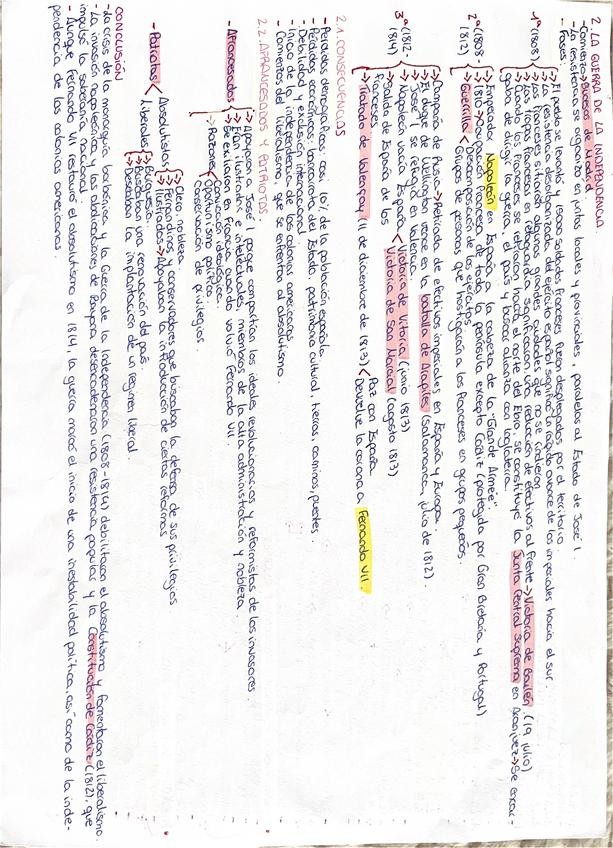 2. LA GUERRA DE LA INDEPENDENCIA.
- Comienzo → Sucesos de Madrid.
- La resistencia se organizó en juntas locales y provinciales, paralelas al Estado de José I.
- Fases:
1ª (1808)
El pueblo se levanta → 110000 soldados franceses fueron desplegados por el territorio.
La resistencia descolonizada del ejército español significó un rápido avance de los imperiales hacia el sur.
Los franceses sitiarán algunas grandes ciudades que no se rindieron.
Las tropas francesas en retaguardia significaron una reducción de efectivos al frente → Victoria de Bailén (19 julio)
Cuando los franceses se retiraron hacia el norte del Ebro, se constituyó la Junta Central Suprema en Aranjuez → Se encar-
gaba de dirigir la guerra, el país y buscar alianza con Inglaterra.
2ª (1808-1812)
Emperador Napoleón en España a la cabeza de la "Grande Armée"
1810 → Ocupación francesa de toda la península excepto Cádiz (protegida por Gran Bretaña y Portugal)
Guerrilla < Descomposición de los ejércitos.
Grupos de personas que hostigarán a los franceses en grupos pequeños.
3ª (1812-1814)
Campaña de Rusia → Retirada de efectivos imperiales en España y Europa.
El duque de Wellington vence en la batalla de Arapiles (Salamanca, julio de 1812).
José I se refugia en Valencia.
Napoleón vacía España < Victoria de Vitoria (junio 1813)
Victoria de San Marcial (agosto 1813)
Salida de España de los
franceses
Tratado de Valençay (11 de diciembre de 1813) < Paz con España
Devuelve la corona a Fernando VII.
2.1. CONSECUENCIAS
- Pérdidas demográficas, casi 10% de la población española.
- Pérdidas económicas, bancarrota del Estado, patrimonio cultural, tierras, caminos, puentes.
- Debilidad y exclusión internacional.
- Inicio de la independencia de las colonias americanas
- Comienzos del liberalismo, que se enfrentan al absolutismo.
2.2. AFRANCESADOS Y PATRIOTAS.
- Afrancesados
Apoyaron a José I porque compartían los ideales revolucionarios y reformistas de los invasores.
Eran ilustrados e intelectuales, miembros de la alta administración y nobleza.
Se exiliaron en Francia cuando volvió Fernando VII.
Razones
Convicción ideológica.
Oportunismo político.
Conservación de privilegios.
- Patriotas <
Absolutistas
Clero, nobleza
Fernandinos y conservadores que buscaban la defensa de sus privilegios
Ilustrados → Apoyaban la introducción de ciertas reformas
Liberales
Burguesía.
Buscaban una renovación del país.
Buscaban la implantación de un régimen liberal.
CONCLUSIÓN
- La crisis de la monarquía borbónica y la Guerra de la Independencia (1808-1814) debilitaron el absolutismo y fomentaron el liberalismo.
- La invasión napoleónica y las abdicaciones de Bayona desencadenaron una resistencia popular y la Constitución de Cádiz (1812), que
impulsó la soberanía nacional.
- Aunque Fernando VII restauró el absolutismo en 1814, la guerra marcó el inicio de una inestabilidad política, así como de la inde-
pendencia de las colonias americanas.